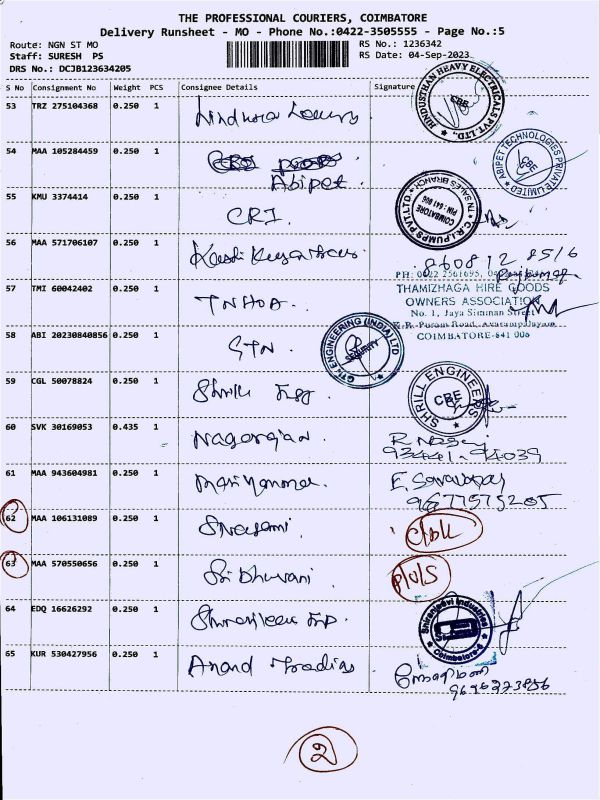 THE PROFESSIONAL COURIERS, COIMBATORE
Delivery Runsheet - MO - Phone No.:0422-3505555 - Page No.:5
Route: NGN ST MO RS No.: 1236342
Staff: SURESH PS RS Date: 04-Sep-2023
DRS No.: DCJB123634205
S No Consignment No Weight PCS Consignee Details Signature
HINDUSTHAN HEAVY ELECTRICALS PVT. LTD.,
CBE
53 TRZ 275104368 0.250 1
54 MAA 105284459 0.250 1
Abipet
ABIPET TECHNOLOGIES PRIVATE LIMITED
CBE
55 KMU 3374414 0.250 1 CRI.
C.R.I. PUMPS PVT.LTD. TN SALES BRANCH
COIMBATORE
PIN : 641 006
56 MAA 571706107 0.250 1
86081 2 8516
PH: 0422 2561695,
57 TMI 60042402 0.250 1 TNHOA.
THAMIZHAGA HIRE GOODS
OWNERS ASSOCIATION
No. 1, Jaya Simman Street
K.R. Puram Road, Avarampalayam
COIMBATORE-641 006
58 ABI 20230840856 0.250 1 GTN.
ENGINEERING (INDIA) LTD
SECURITY
59 CGL 50078824 0.250 1 Shrill Egg
SHRILL ENGINEERS
CBE
60 SVK 30169053 0.435 1 Nagarajan
93441-94039
61 MAA 943604981 0.250 1
9677575205
62 MAA 106131089 0.250 1 Sivasami
63 MAA 570550656 0.250 1 Sri Dhurani
64 EDQ 16626292 0.250 1
Sriranjeevi Industries
Coimbatore-6
65 KUR 530427956 0.250 1 Anand Trading
9696273856
2